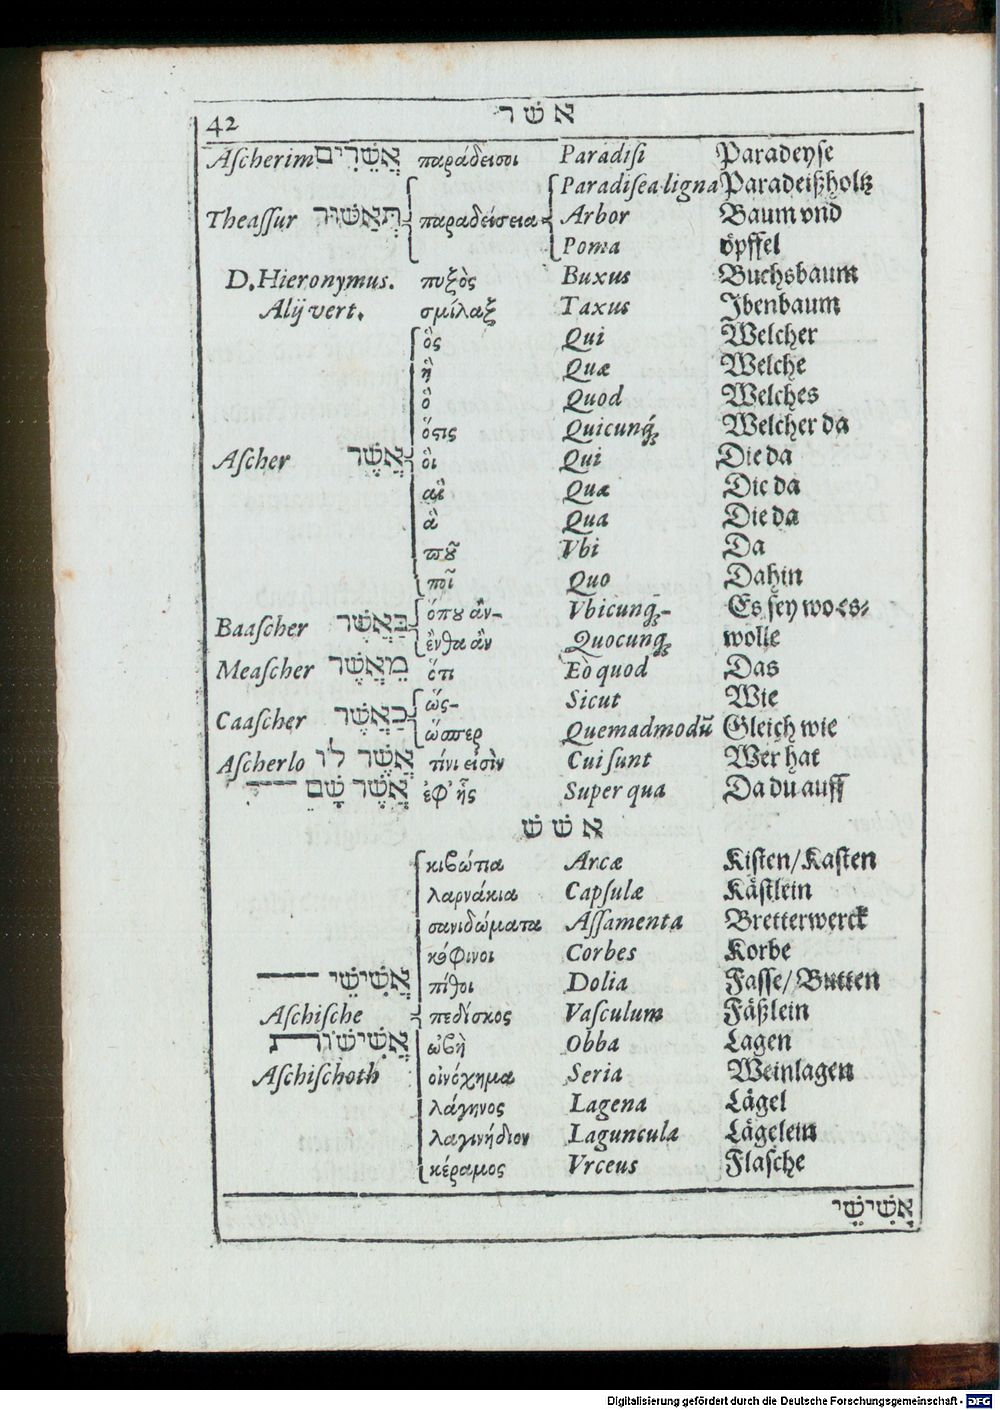 42 אשׁר
Aſcherim אֲשֵׁרִים παράδεισοι Paradiſi Paradeyſe
Paradiſea ligna Paradeißholtz
Theaſſur תְּאַשּׁוּר παραδείσεια Arbor Baum vnd
Poma öpffel
D. Hieronymus. πυξὸς Buxus Buchsbaum
Alij vert. σμίλαξ Taxus Ibenbaum
ὃς Qui Welcher
ἣ Quæ Welche
ὃ Quod Welches
ὅςις Quicunq; Welcher da
Aſcher אֲשֶׁר οἳ Qui Die da
αἳ Quæ Die da
ἃ Qua Die da
ποῦ Vbi Da
ποῖ Quo Dahin
ὅπου ἂν- Vbicunq;- Es ſey wo es-
Baaſcher בַּאֲשֶׁר ἔνθα ἂν Quocunq; wolle
Meaſcher מֵאֲשֶׁר ὅτι Eo quod Das
ὥς- Sicut Wie
Caaſcher כַּאֲשֶׁר ὥσπερ Quemadmodū Gleich wie
Aſcherlo אֲשֶׁר לוֹ τίνι εἰσὶν Cui ſunt Wer hat
אֲשֶׁר שָׁם ἐφ' ἧς Super qua Da du auff
אשׁשׁ
κιβώτια Arcæ Kiſten/Kaſten
λαρνάκια Capſulæ Käſtlein
σανιδώματα Aſſamenta Bretterwerck
κόφινοι Corbes Korbe
אֲשִׁישֵׁי πίθοι Dolia Faſſe/Butten
Aſchiſche πεδίσκος Vaſculum Fäßlein
אֲשִׁישׁוֹת ὠβὴ Obba Lagen
Aſchiſchoth οἰνόχημα Seria Weinlagen
λάγηνος Lagena Lägel
λαγινήδιον Laguncula Lägelein
κέραμος Vrceus Flaſche
אֲשִׁישֵׁי
Digitalisierung gefördert durch die Deutsche Forschungsgemeinschaft - DFG